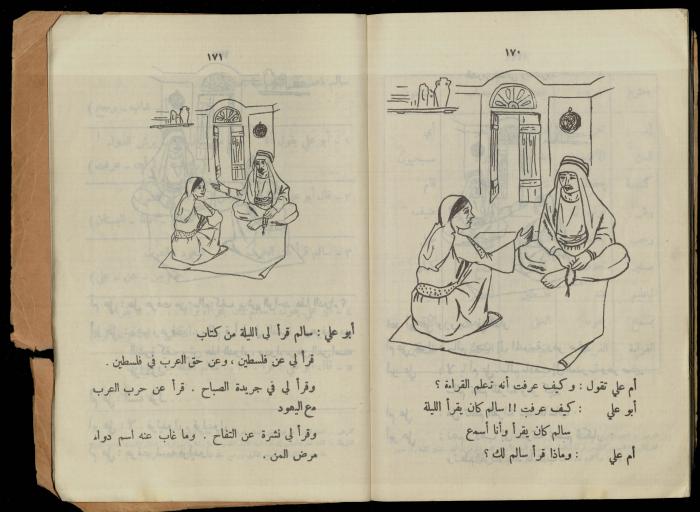 ١٧٠
أم علي تقول : وكيف عرفت أنه تعلم القراءة ؟
أبو علي : كيف عرفت !! سالم كان يقرأ الليلة
سالم كان يقرأ وأنا أسمع
أم علي : وماذا قرأ سالم لك ؟
١٧١
أبو علي : سالم قرأ لى الليلة من كتاب
قرأ لي عن فلسطين ، وعن حق العرب في فلسطين .
وقرأ لي في جريدة الصباح . قرأ عن حرب العرب
مع اليهود
وقرأ لى نشرة عن التفاح . وما غاب عنه اسم دواء
مرض المن .